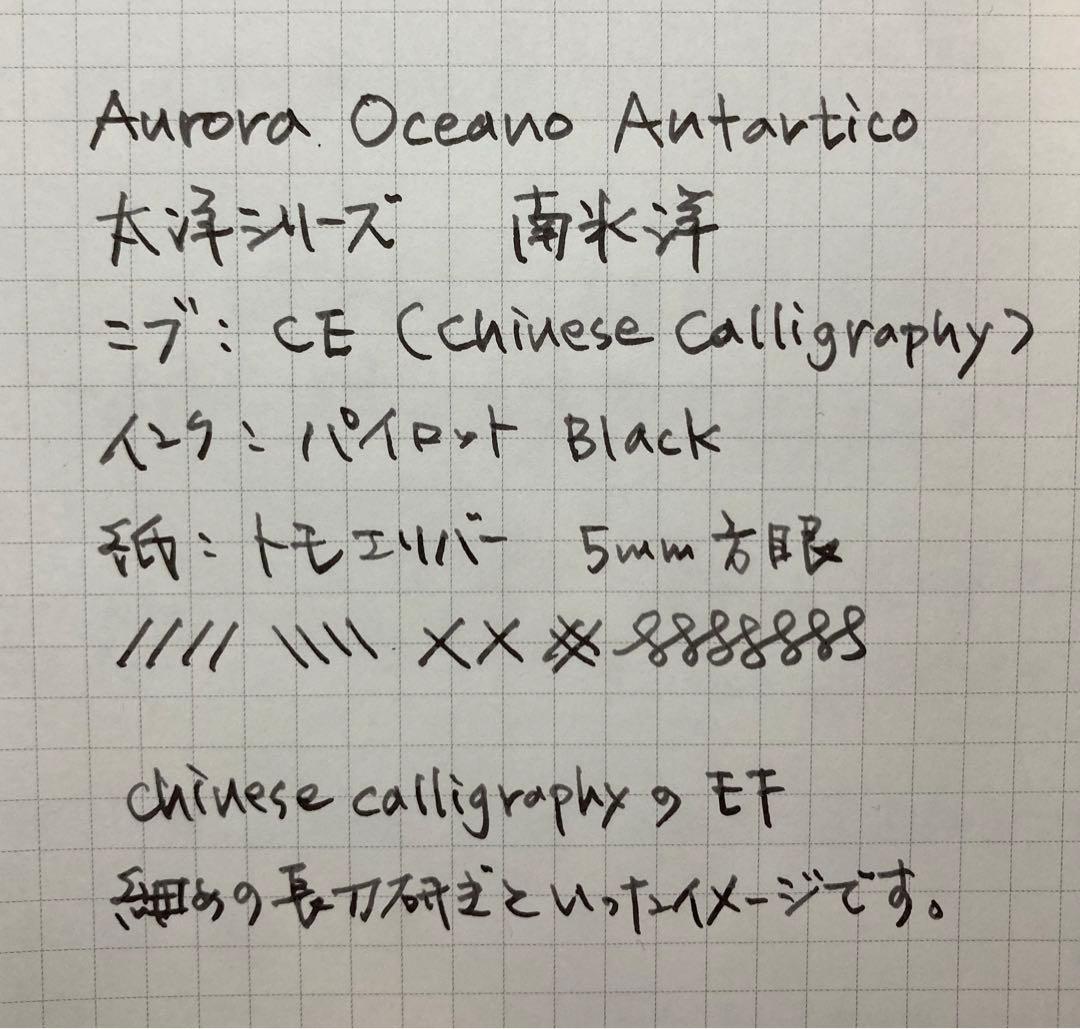 Aurora Oceano Antartico
太洋シリーズ 南氷洋
ニブ: CE (Chinese Calligraphy)
インク: パイロット Black
紙: トモエリバー 5mm方眼
//// \\\\ X X
chinese calligraphyのEF
細めの長刀研ぎといったイメージです。